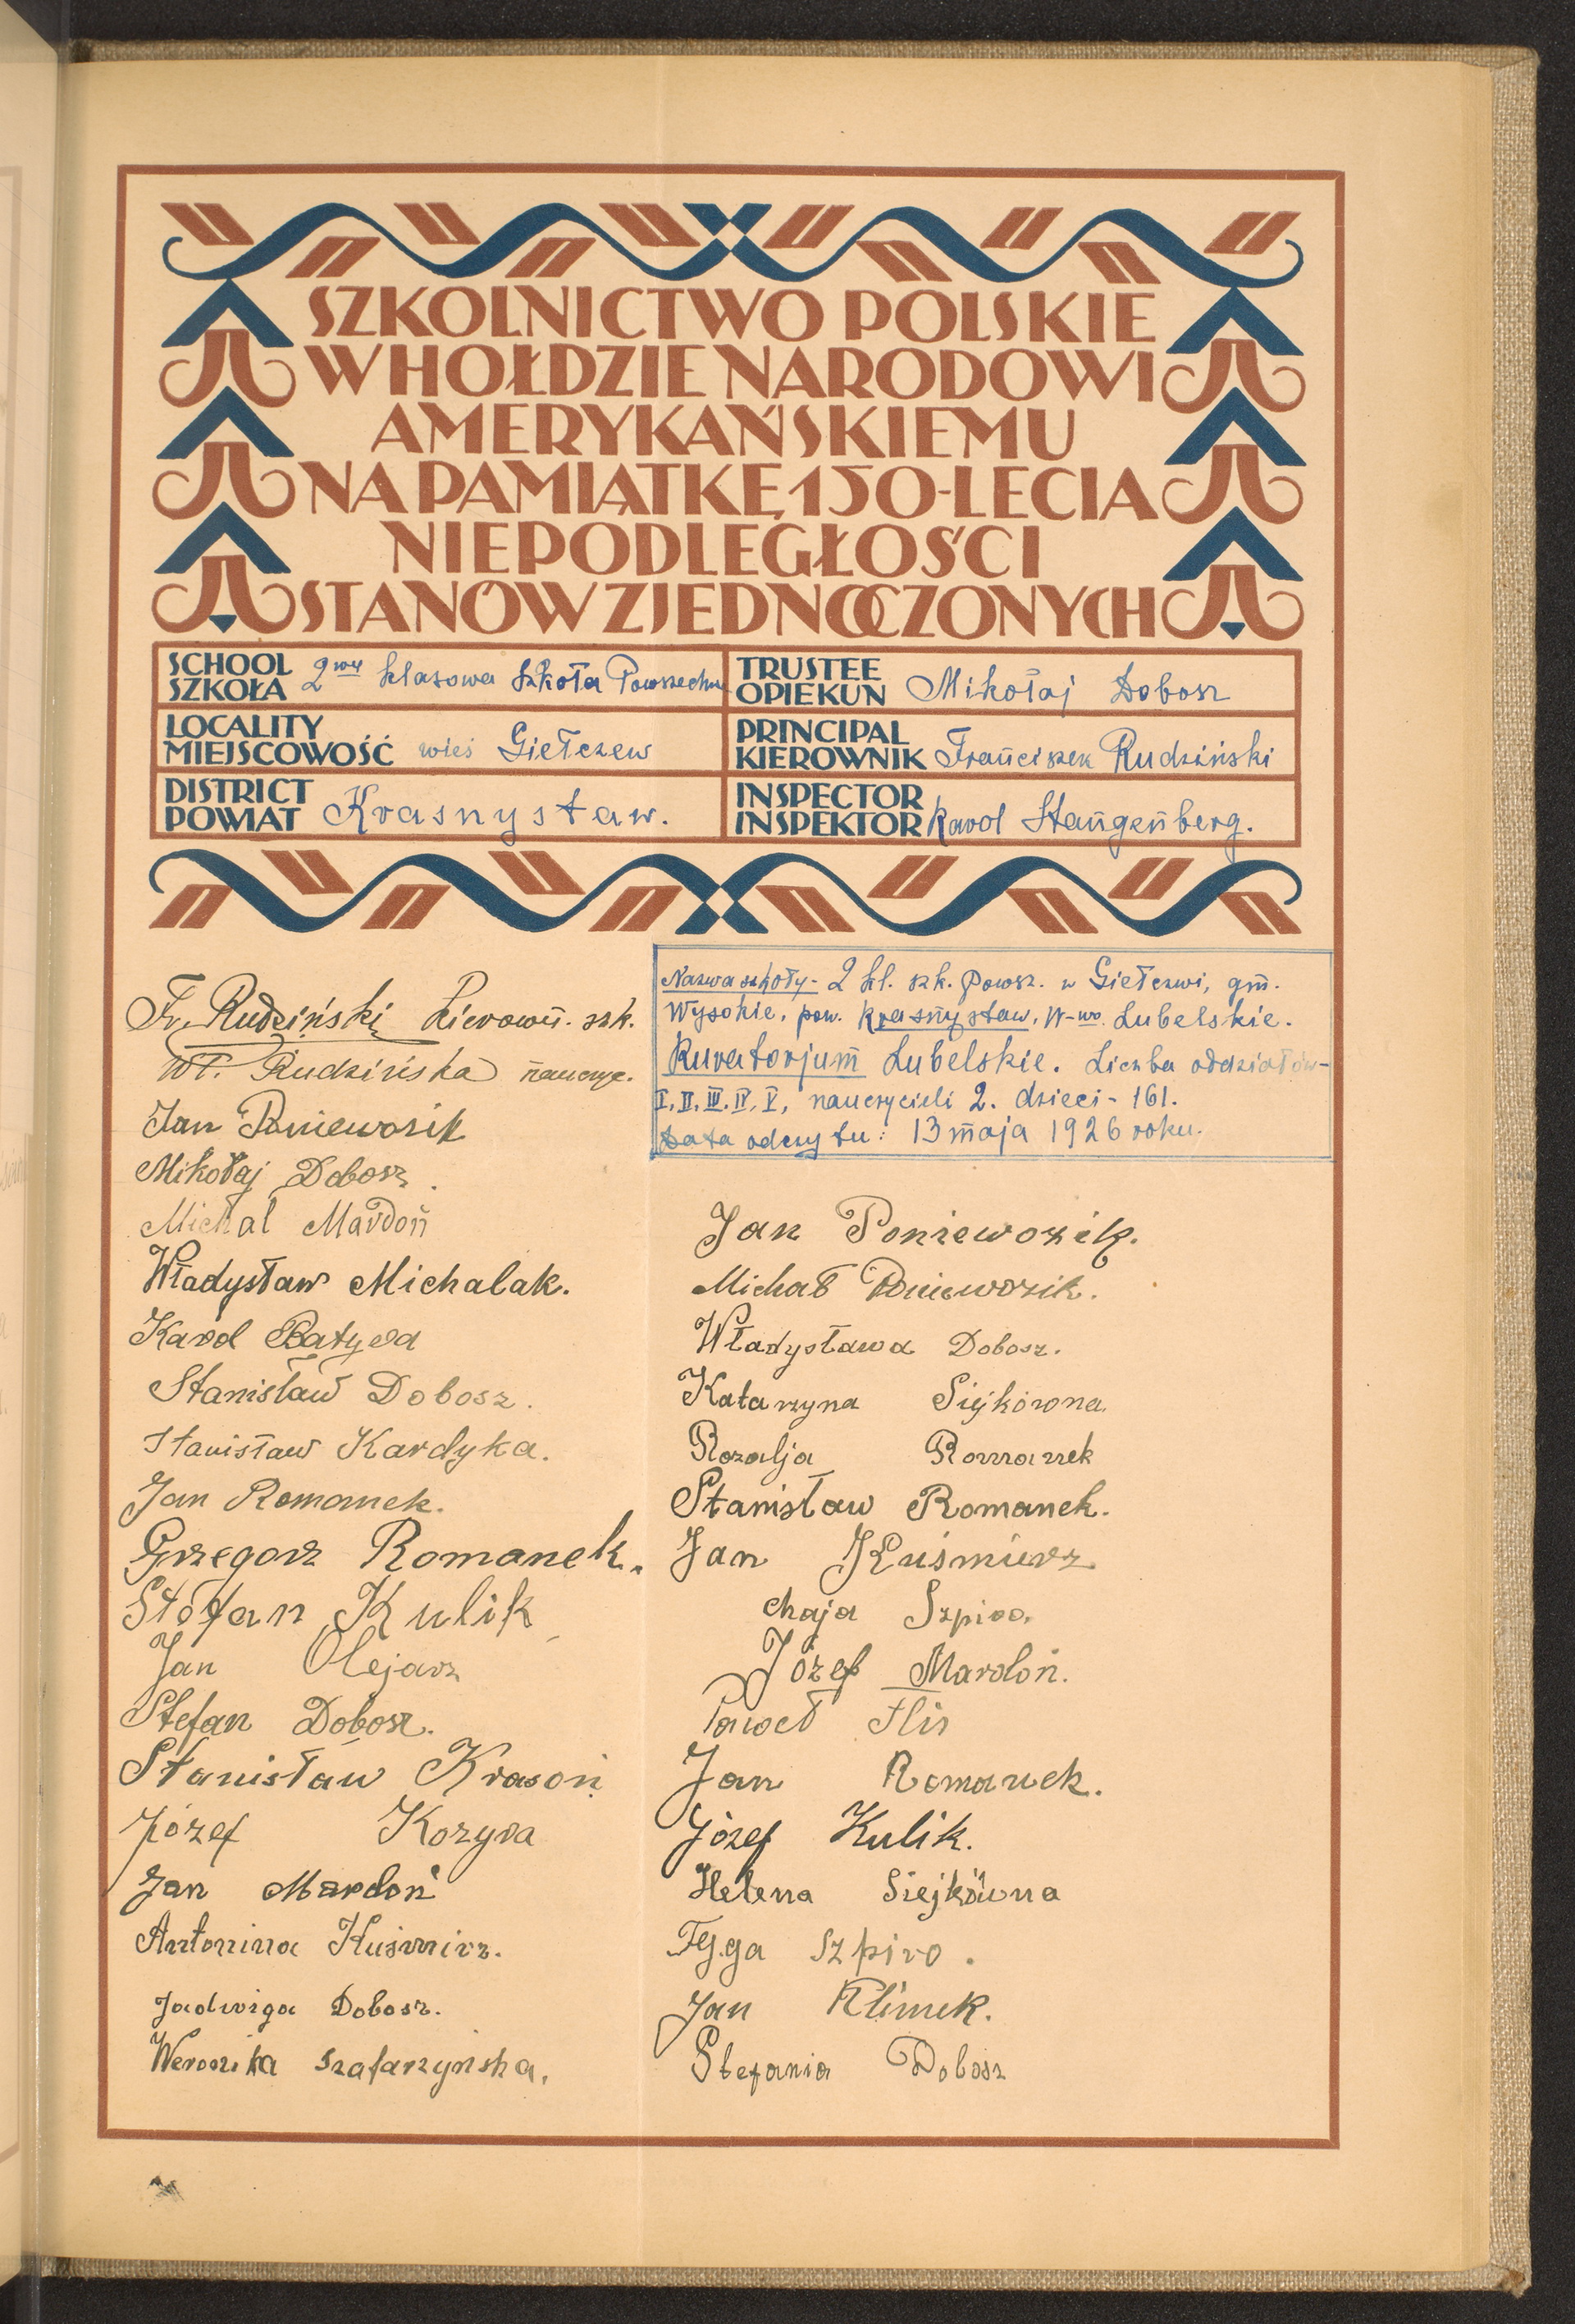 SZKOLNICTWO POLSKIE
W HOŁDZIE NARODOWI
AMERYKAŃSKIEMU
NA PAMIĄTKĘ 150-LECIA
NIEPODLEGŁOŚCI
STANÓW ZJEDNOCZONYCH
SCHOOL
SZKOŁA 2wu klasowa Szkoła Powszechna
TRUSTEE
OPIEKUN Mikołaj Dobosz
LOCALITY
MIEJSCOWOŚĆ wieś Giełczew
PRINCIPAL
KIEROWNIK Franciszek Rudziński
DISTRICT
POWIAT Krasnystaw.
INSPECTOR
INSPEKTOR Karol Stangenberg.
Nazwa szkoły - 2 kl. szk. Powsz. w Giełczwi, gm.
Wysokie, pow. Krasnystaw, W-wo. Lubelskie.
Kuratorjum Lubelskie. Liczba oddziałów-
I, II, III, IV, V, nauczycieli 2. dzieci - 161.
Data odczytu: 13 maja 1926 roku.
Fr. Rudziński Kierown. szk.
Wł. Rudzińska nauczyc.
Jan Poniewozik
Mikołaj Dobosz.
Michał Mardoń
Władysław Michalak.
Karol Batyra
Stanisław Dobosz.
Stanisław Kardyka.
Jan Romanek.
Grzegorz Romanek.
Stefan Kulik
Jan Olejarz
Stefan Dobosz.
Stanisław Krasoń
Józef Kozyra
Jan Mardoń
Antonina Kuśmirz.
Jadwiga Dobosz.
Weronika Szafarzyńska.
Jan Poniewozik.
Michał Poniewozik.
Władysława Dobosz.
Katarzyna Siejkówna.
Rozalja Romanek
Stanisław Romanek.
Jan Kuśmierz
Chaja Szpiro.
Józef Mardoń.
Paweł Flis
Jan Romanek.
Józef Kulik.
Helena Siejkówna
Fejga Szpiro.
Jan Klimek.
Stefania Dobosz